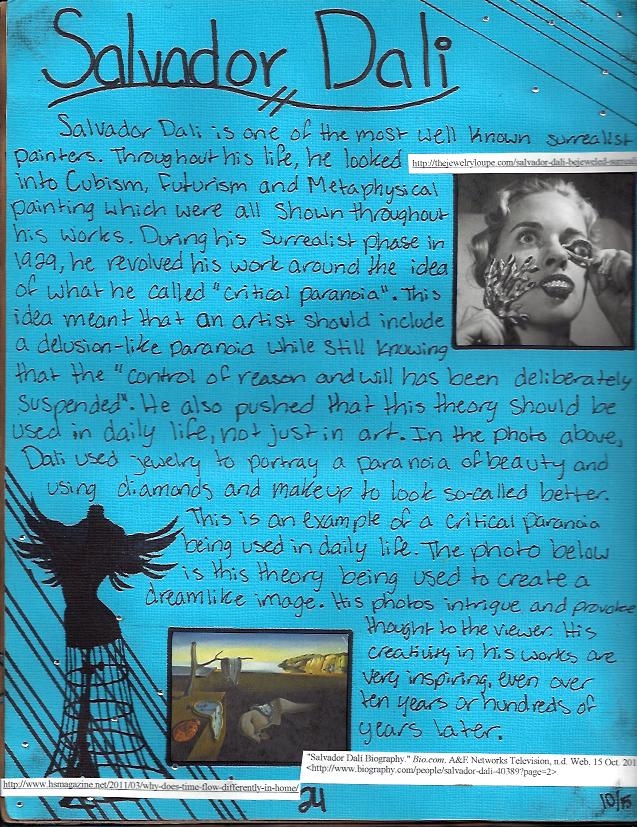 Salvador Dali
Salvador Dali is one of the most well known surrealist
painters. Throughout his life, he looked
http://thejewelryloupe.com/salvador-dali-bejeweled-surreal
into Cubism, Futurism and Metaphysical
painting which were all shown throughout
his works. During his surrealist phase in
1929, he revolved his work around the idea
of what he called "critical paranoia". This
idea meant that an artist should include
a delusion-like paranoia while still knowing
that the "control of reason and will has been deliberately
suspended". He also pushed that this theory should be
used in daily life, not just in art. In the photo above,
Dali used jewelry to portray a paranoia of beauty and
using diamonds and makeup to look so-called better.
This is an example of a critical paranoia
being used in daily life. The photo below
is this theory being used to create a
dreamlike image. His photos intrigue and provoke
thought to the viewer. His
creativity in his works are
very inspiring, even over
ten years or hundreds of
years later.
"Salvador Dali Biography." Bio.com. A&E Networks Television, n.d. Web. 15 Oct. 201
<http://www.biography.com/people/salvador-dali-40389?page=2>
http://www.hsmagazine.net/2011/03/why-does-time-flow-differently-in-home/
24
10/15